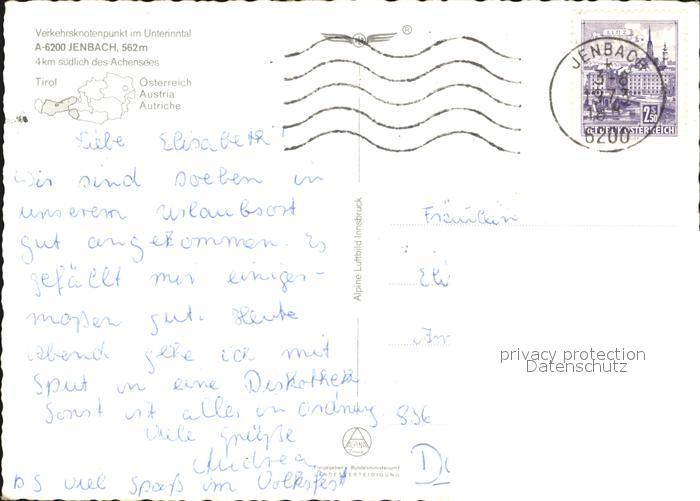 Verkehrsknotenpunkt im Unterinntal
A-6200 JENBACH, 562m
4 km südlich des Achensees
Tirol
Österreich
Austria
Autriche
®
LINZ
JENBACH
6200
2 S 50
REPUBLIK ÖSTERREICH
Liebe Elisabeth!
Wir sind soeben in
unserem Urlaubsort
gut angekommen. Es
gefällt mir einiger-
maßen gut. Heute
abend gehe ich mit
in eine Diskothek
Sonst ist alles in Ordnung.
Viele Grüße
Andrea
PS viel Spaß im Volksfest
Alpine Luftbild Innsbruck
Fräulein
Eli
836
D
ALPINE
Freigegeben v. Bundesministerium f.
LANDESVERTEIDIGUNG
privacy protection
Datenschutz